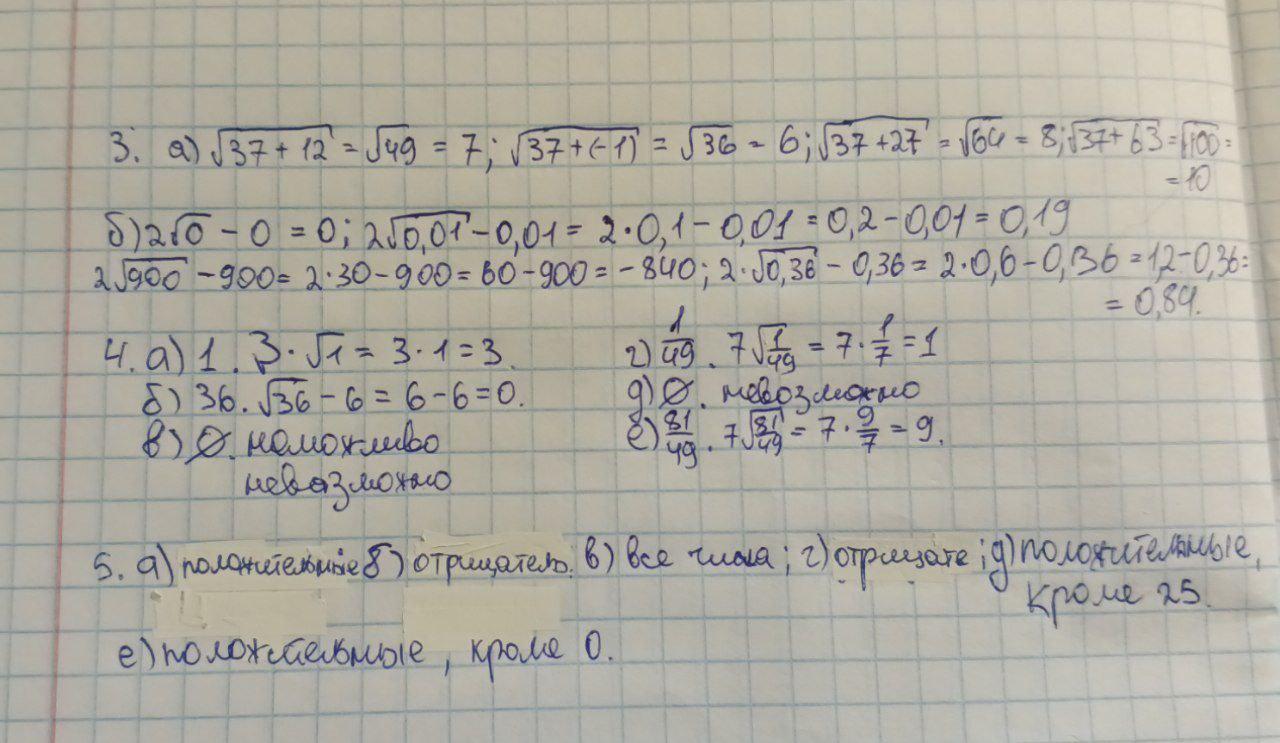 3. а) √37+12 = √49 = 7; √37+(-1) = √36 = 6; √37+27 = √64 = 8; √37+63 = √100 =
= 10
б) 2√0 - 0 = 0; 2√0,01 - 0,01 = 2·0,1 - 0,01 = 0,2 - 0,01 = 0,19
2√900 - 900 = 2·30 - 900 = 60 - 900 = -840; 2·√0,36 - 0,36 = 2·0,6 - 0,36 = 1,2 - 0,36 =
= 0,84.
4. а) 1. 3·√1 = 3·1 = 3.
б) 36. √36 - 6 = 6 - 6 = 0.
в) ∅. неможливо
невозможно
г) 1/49. 7√1/49 = 7·1/7 = 1
д) ∅. невозможно
е) 81/49. 7√81/49 = 7·9/7 = 9.
5. а) положительные б) отрицатель. в) все числа; г) отрицате; д) положительные,
кроме 25.
е) положительные, кроме 0.